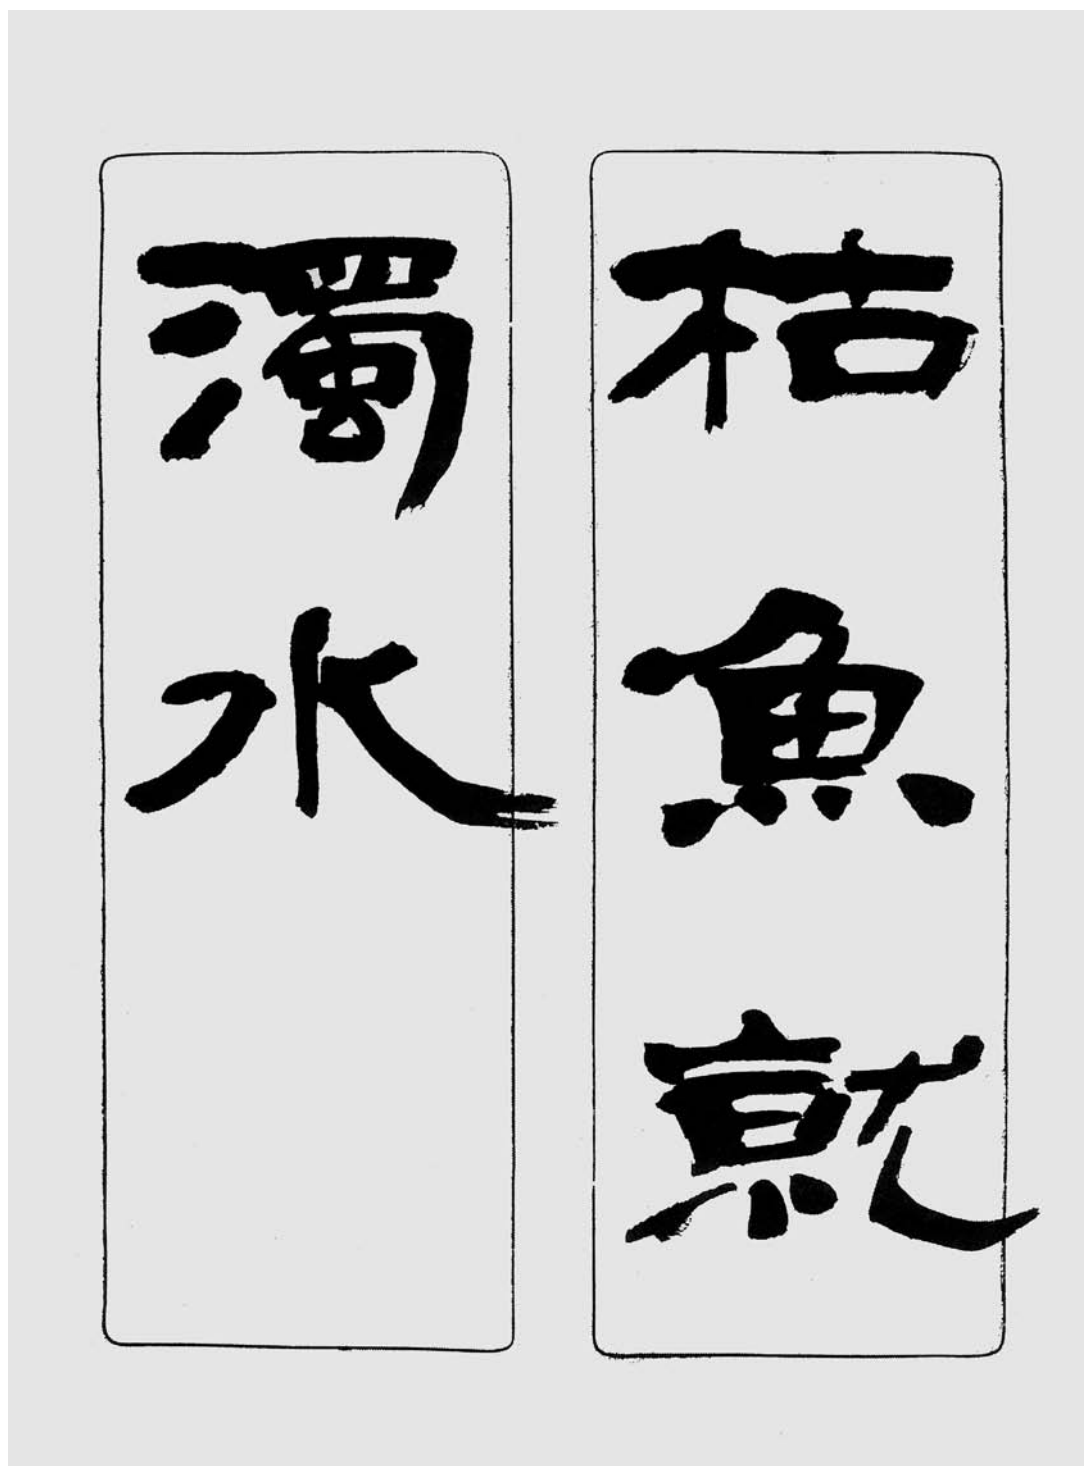 枯魚就
濁水